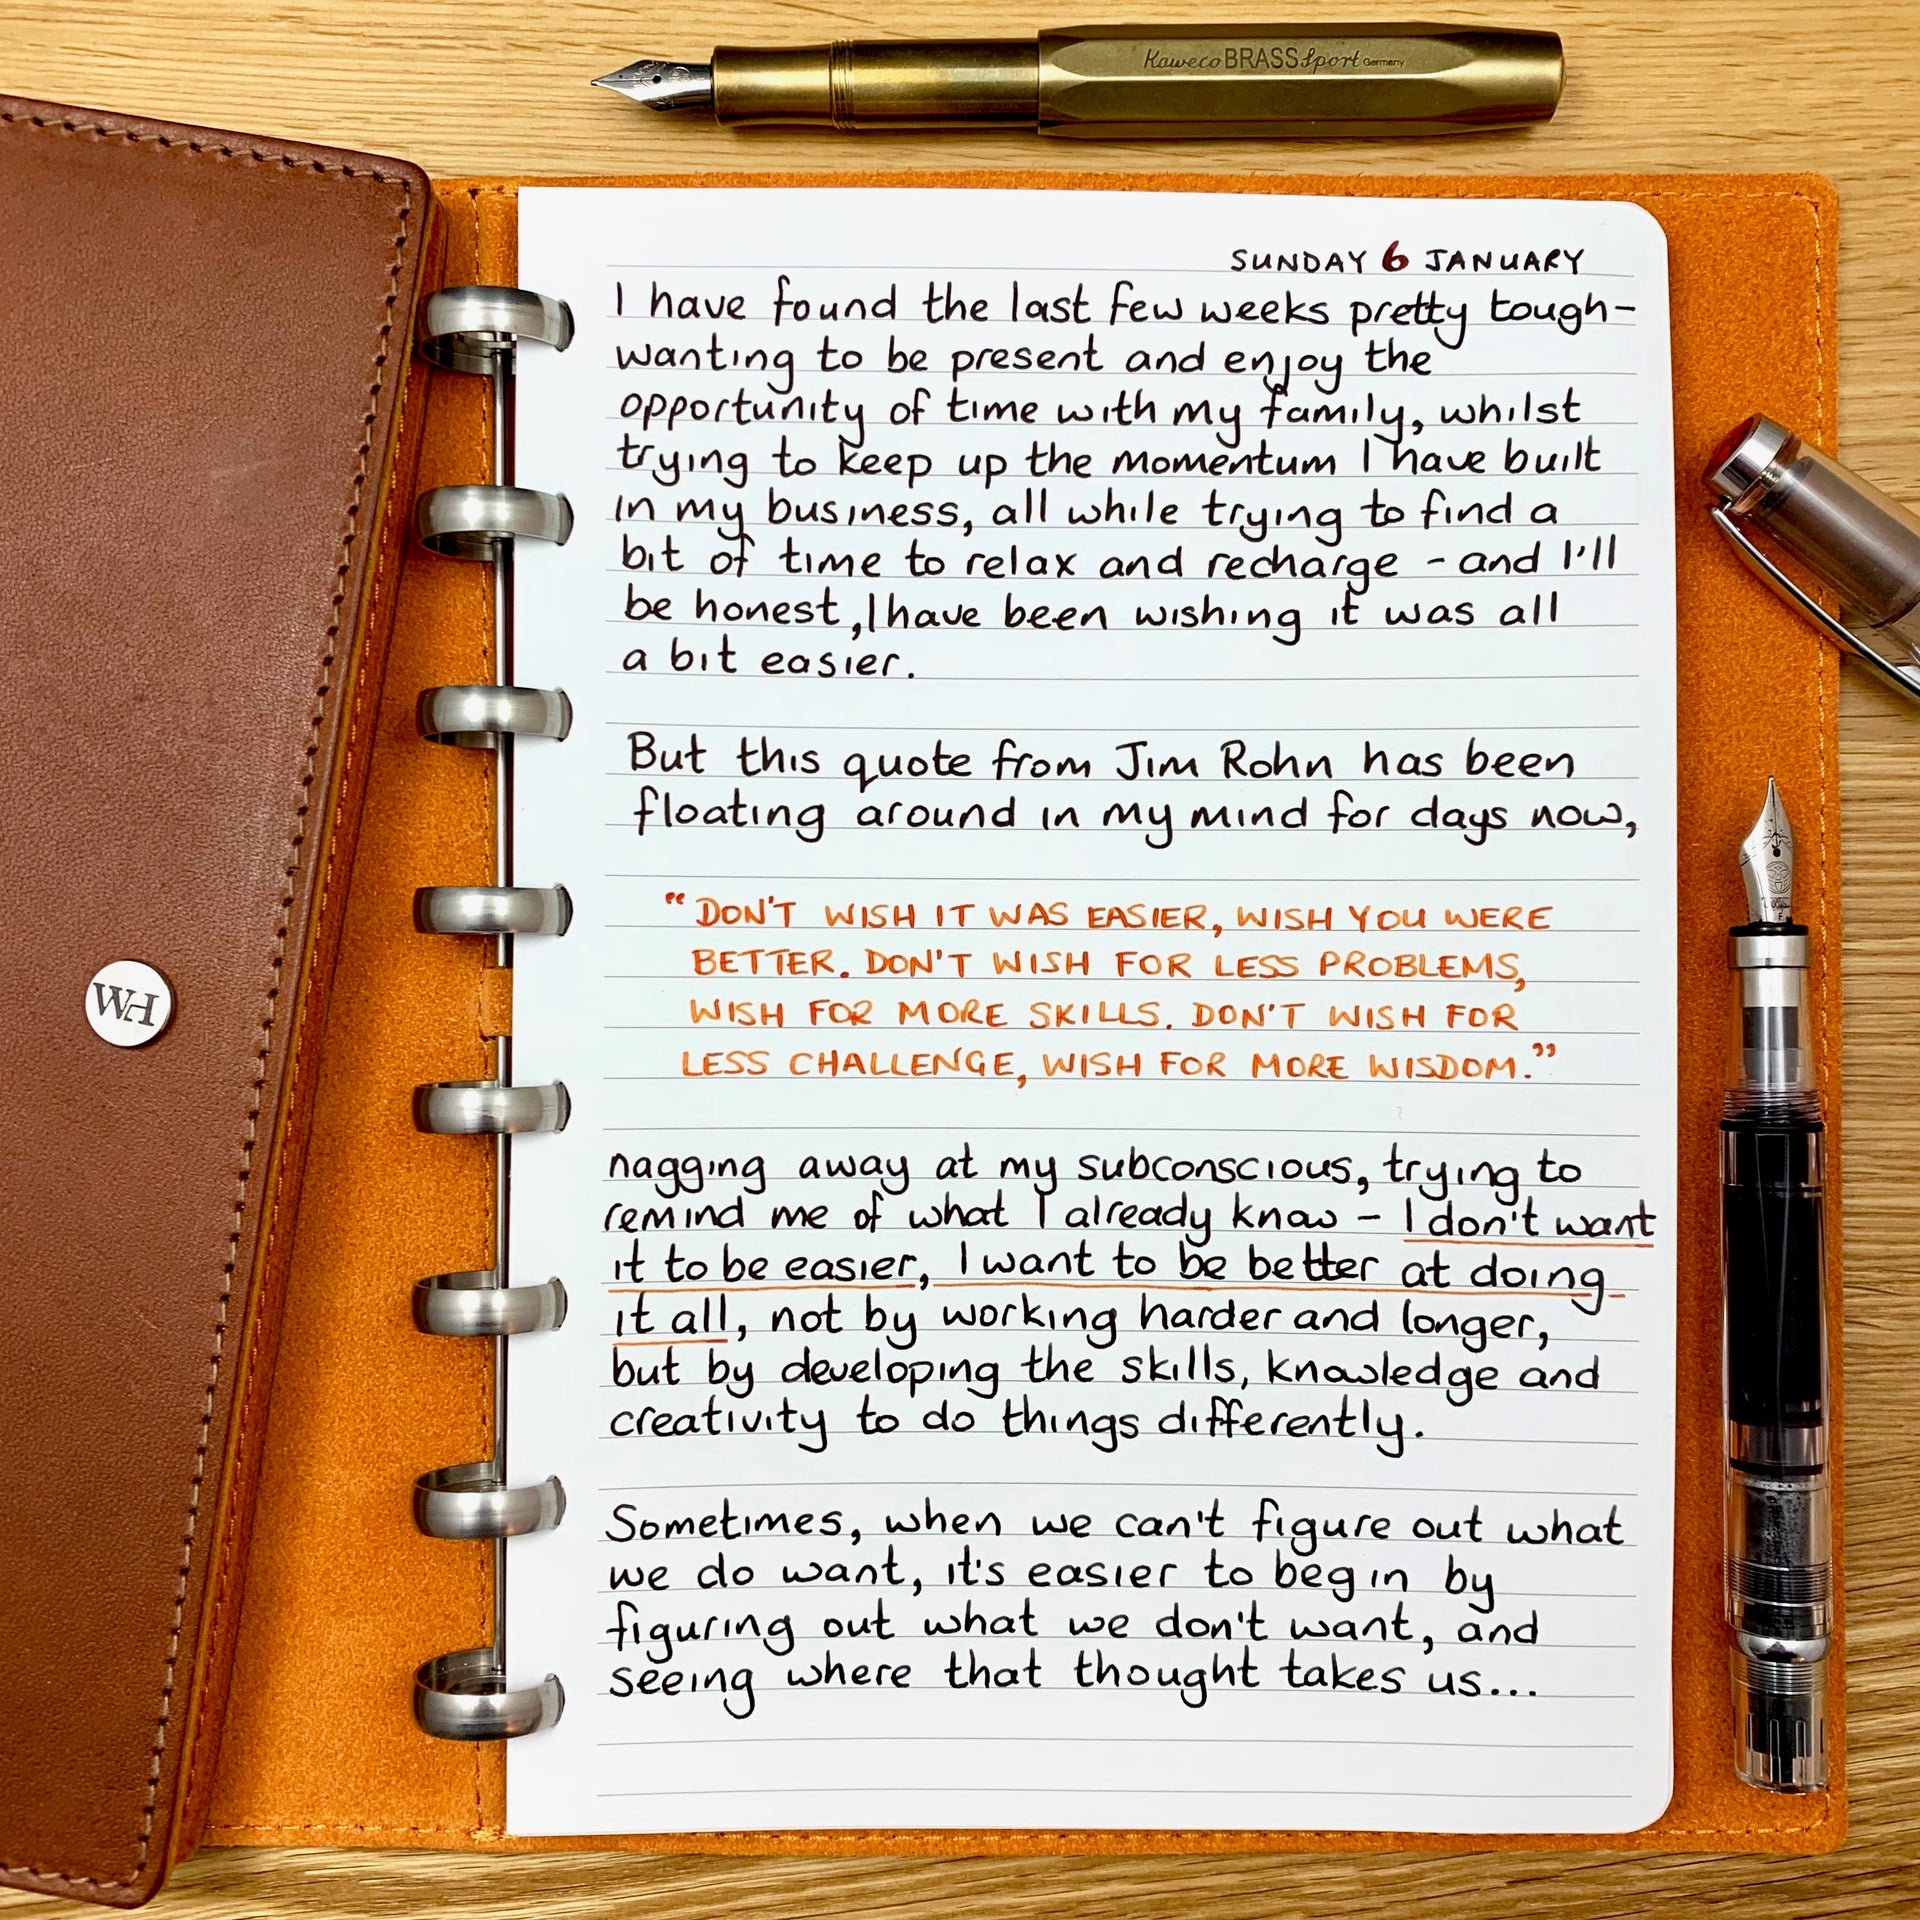 Kaweco BRASS Sport Germany
SUNDAY 6 JANUARY
I have found the last few weeks pretty tough –
wanting to be present and enjoy the
opportunity of time with my family, whilst
trying to keep up the momentum I have built
in my business, all while trying to find a
bit of time to relax and recharge – and I'll
be honest, I have been wishing it was all
a bit easier.
But this quote from Jim Rohn has been
floating around in my mind for days now,
“DON'T WISH IT WAS EASIER, WISH YOU WERE
BETTER. DON'T WISH FOR LESS PROBLEMS,
WISH FOR MORE SKILLS. DON'T WISH FOR
LESS CHALLENGE, WISH FOR MORE WISDOM.”
nagging away at my subconscious, trying to
remind me of what I already know – I don't want
it to be easier, I want to be better at doing
it all, not by working harder and longer,
but by developing the skills, knowledge and
creativity to do things differently.
Sometimes, when we can't figure out what
we do want, it's easier to begin by
figuring out what we don't want, and
seeing where that thought takes us...
WH